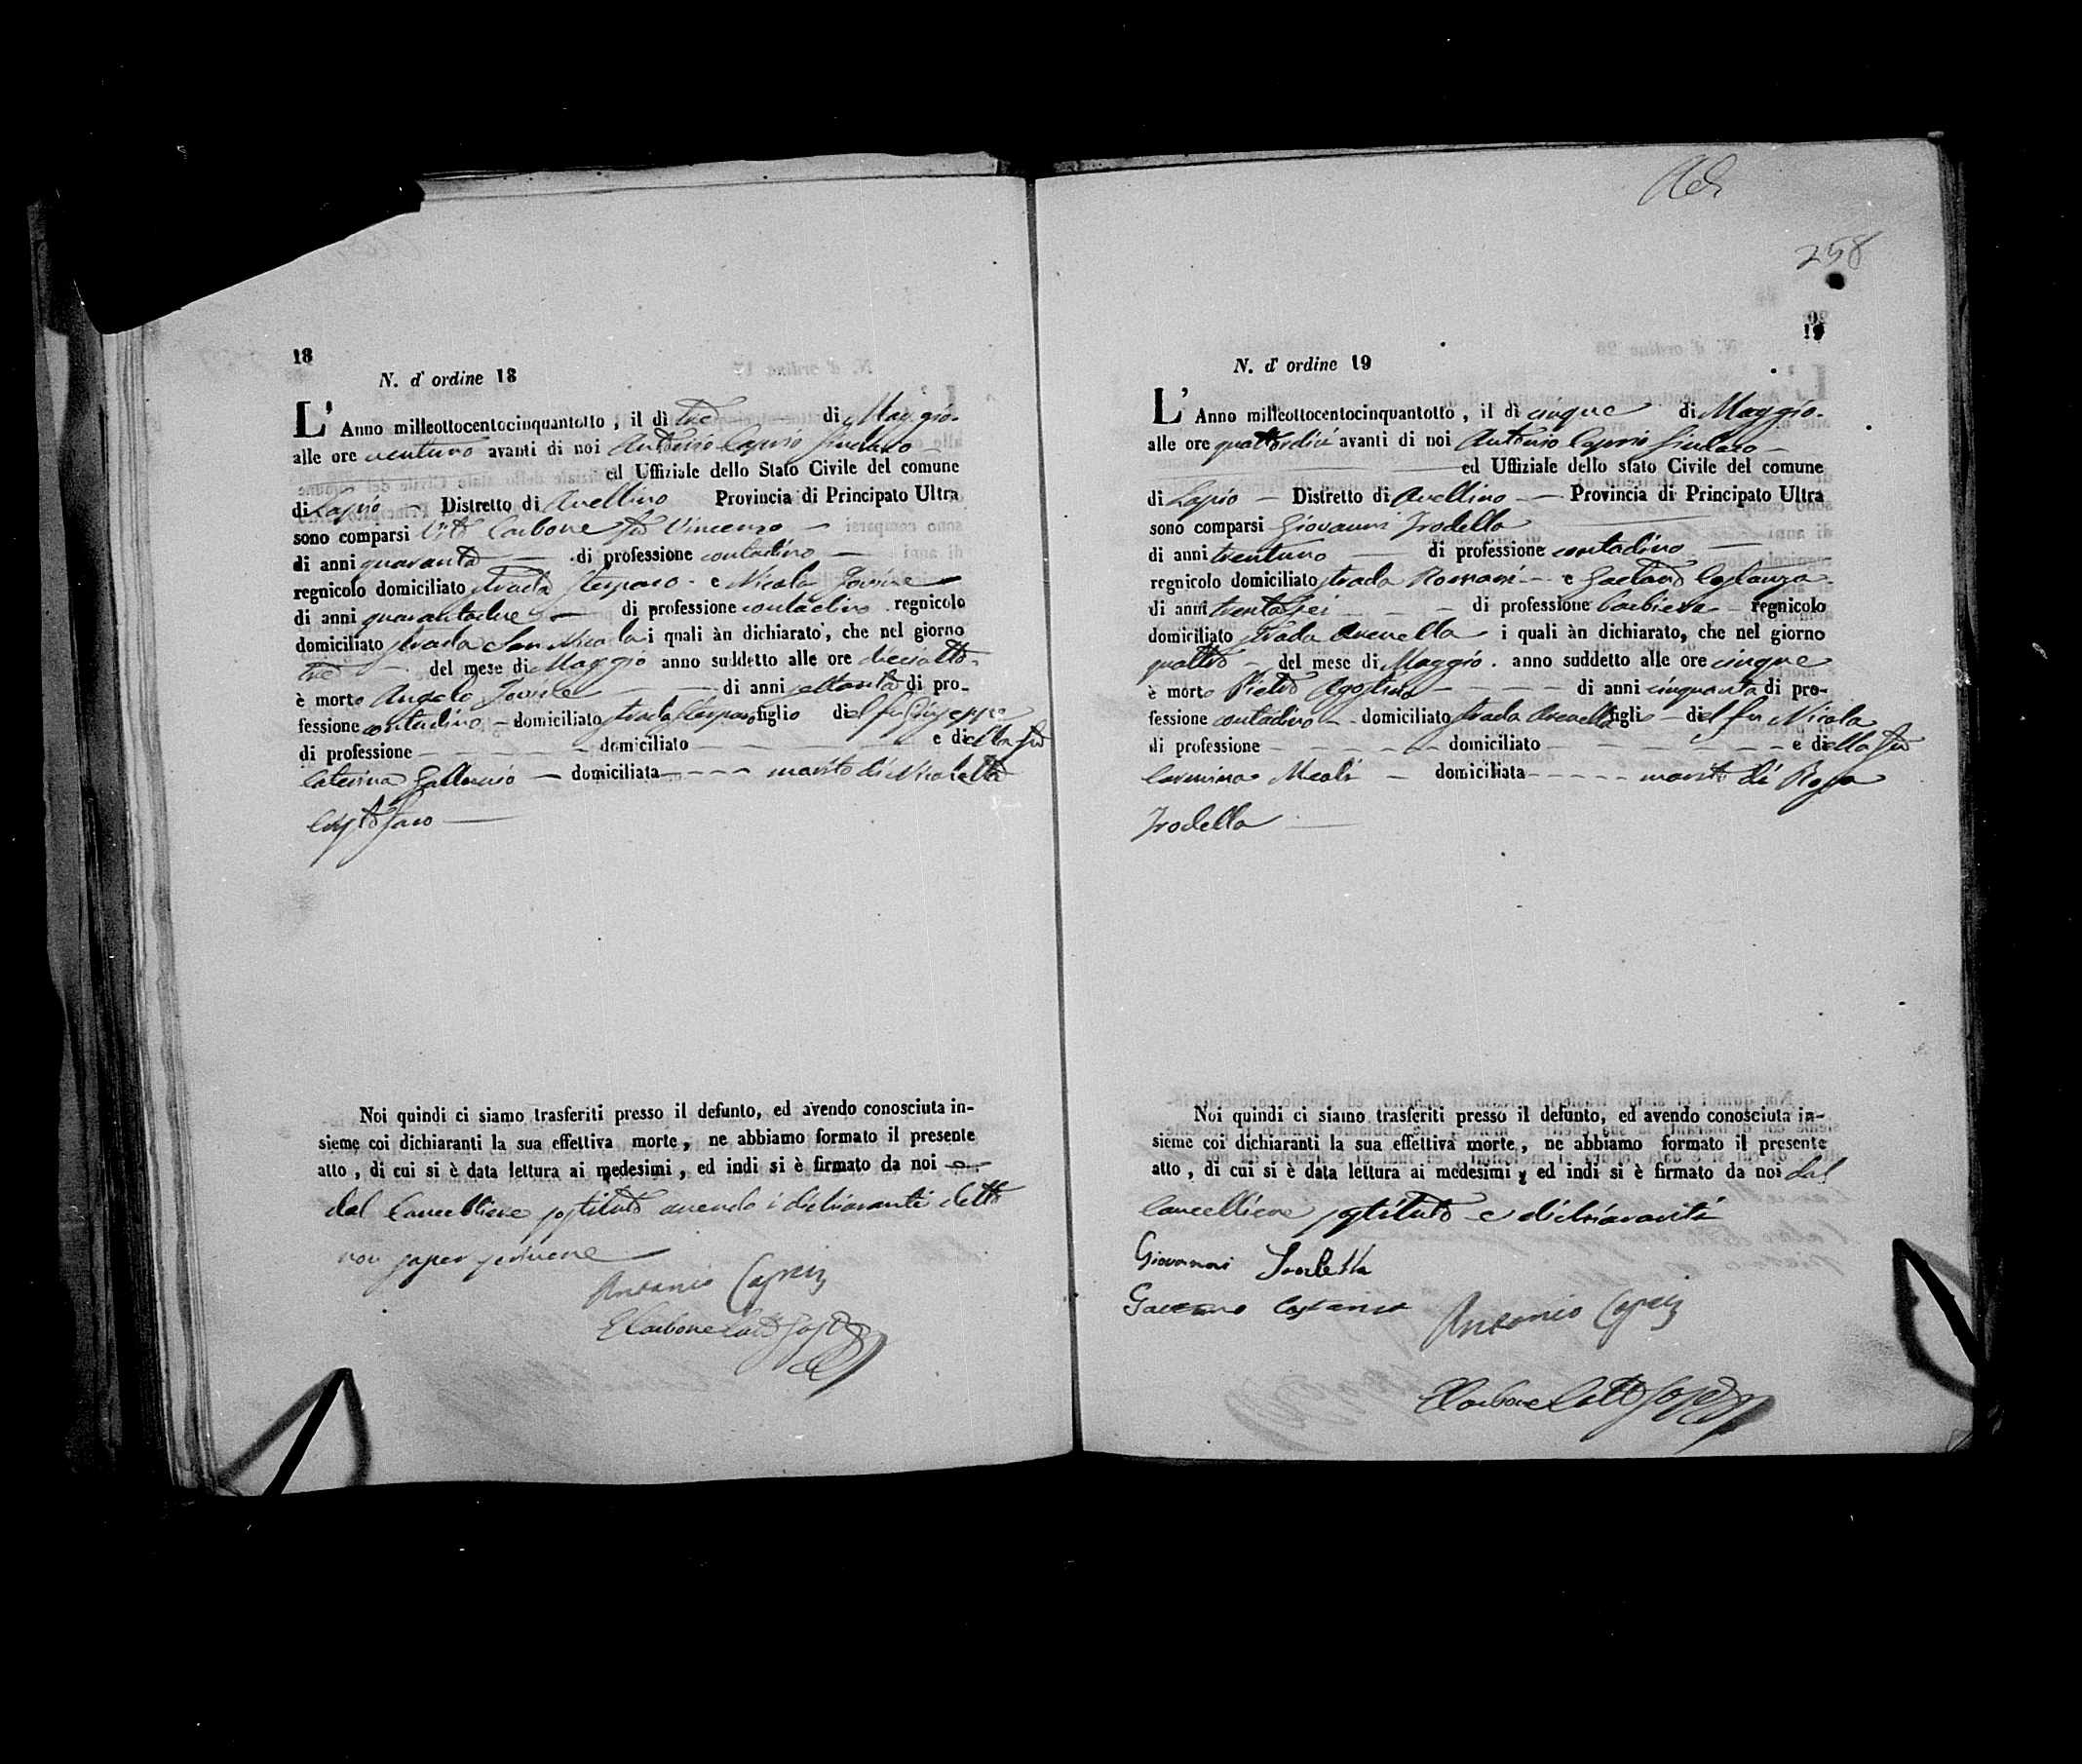 18
N. d' ordine 18
L' Anno milleottocentocinquantotto, il dì tre di Maggio
alle ore ventuno avanti di noi Antonio Caprio Sindaco
ed Uffiziale dello Stato Civile del comune
di Lapio Distretto di Avellino Provincia di Principato Ultra
sono comparsi Vito Carbone fu Vincenzo
di anni quaranta di professione contadino
regnicolo domiciliato strada e Nicola Iovine
di anni quarantadue di professione contadino regnicolo
domiciliato strada San Nicola i quali àn dichiarato, che nel giorno
tre del mese di Maggio anno suddetto alle ore dieciotto
è morto Angelo Iovine di anni settanta di pro-
fessione contadino domiciliato strada figlio del fu Giuseppe
di professione domiciliato e della fu
Caterina domiciliata marito di Nicoletta
Cristofaro
Noi quindi ci siamo trasferiti presso il defunto, ed avendo conosciuta in-
sieme coi dichiaranti la sua effettiva morte, ne abbiamo formato il presente
atto, di cui si è data lettura ai medesimi, ed indi si è firmato da noi e
dal Cancelliere sostituto avendo i dichiaranti detto
non saper scrivere
Antonio Caprio
Carbone
258
19
N. d' ordine 19
L' Anno milleottocentocinquantotto, il dì cinque di Maggio
alle ore quattordici avanti di noi Antonio Caprio Sindaco
ed Uffiziale dello stato Civile del comune
di Lapio Distretto di Avellino Provincia di Principato Ultra
sono comparsi Giovanni Trodella
di anni trentuno di professione contadino
regnicolo domiciliato strada Romani e Gaetano Costanza
di anni trentasei di professione barbiere regnicolo
domiciliato strada Arenella i quali àn dichiarato, che nel giorno
quattro del mese di Maggio anno suddetto alle ore cinque
è morto Pietro Agostino di anni cinquanta di pro-
fessione contadino domiciliato strada Arenella figlio del fu Nicola
di professione domiciliato e della fu
Carmina Meoli domiciliata marito di Rosa
Trodella
Noi quindi ci siamo trasferiti presso il defunto, ed avendo conosciuta in-
sieme coi dichiaranti la sua effettiva morte, ne abbiamo formato il presente
atto, di cui si è data lettura ai medesimi, ed indi si è firmato da noi dal
Cancelliere sostituto e dichiaranti
Giovanni Trodella
Gaetano Costanza Antonio Caprio
Carbone